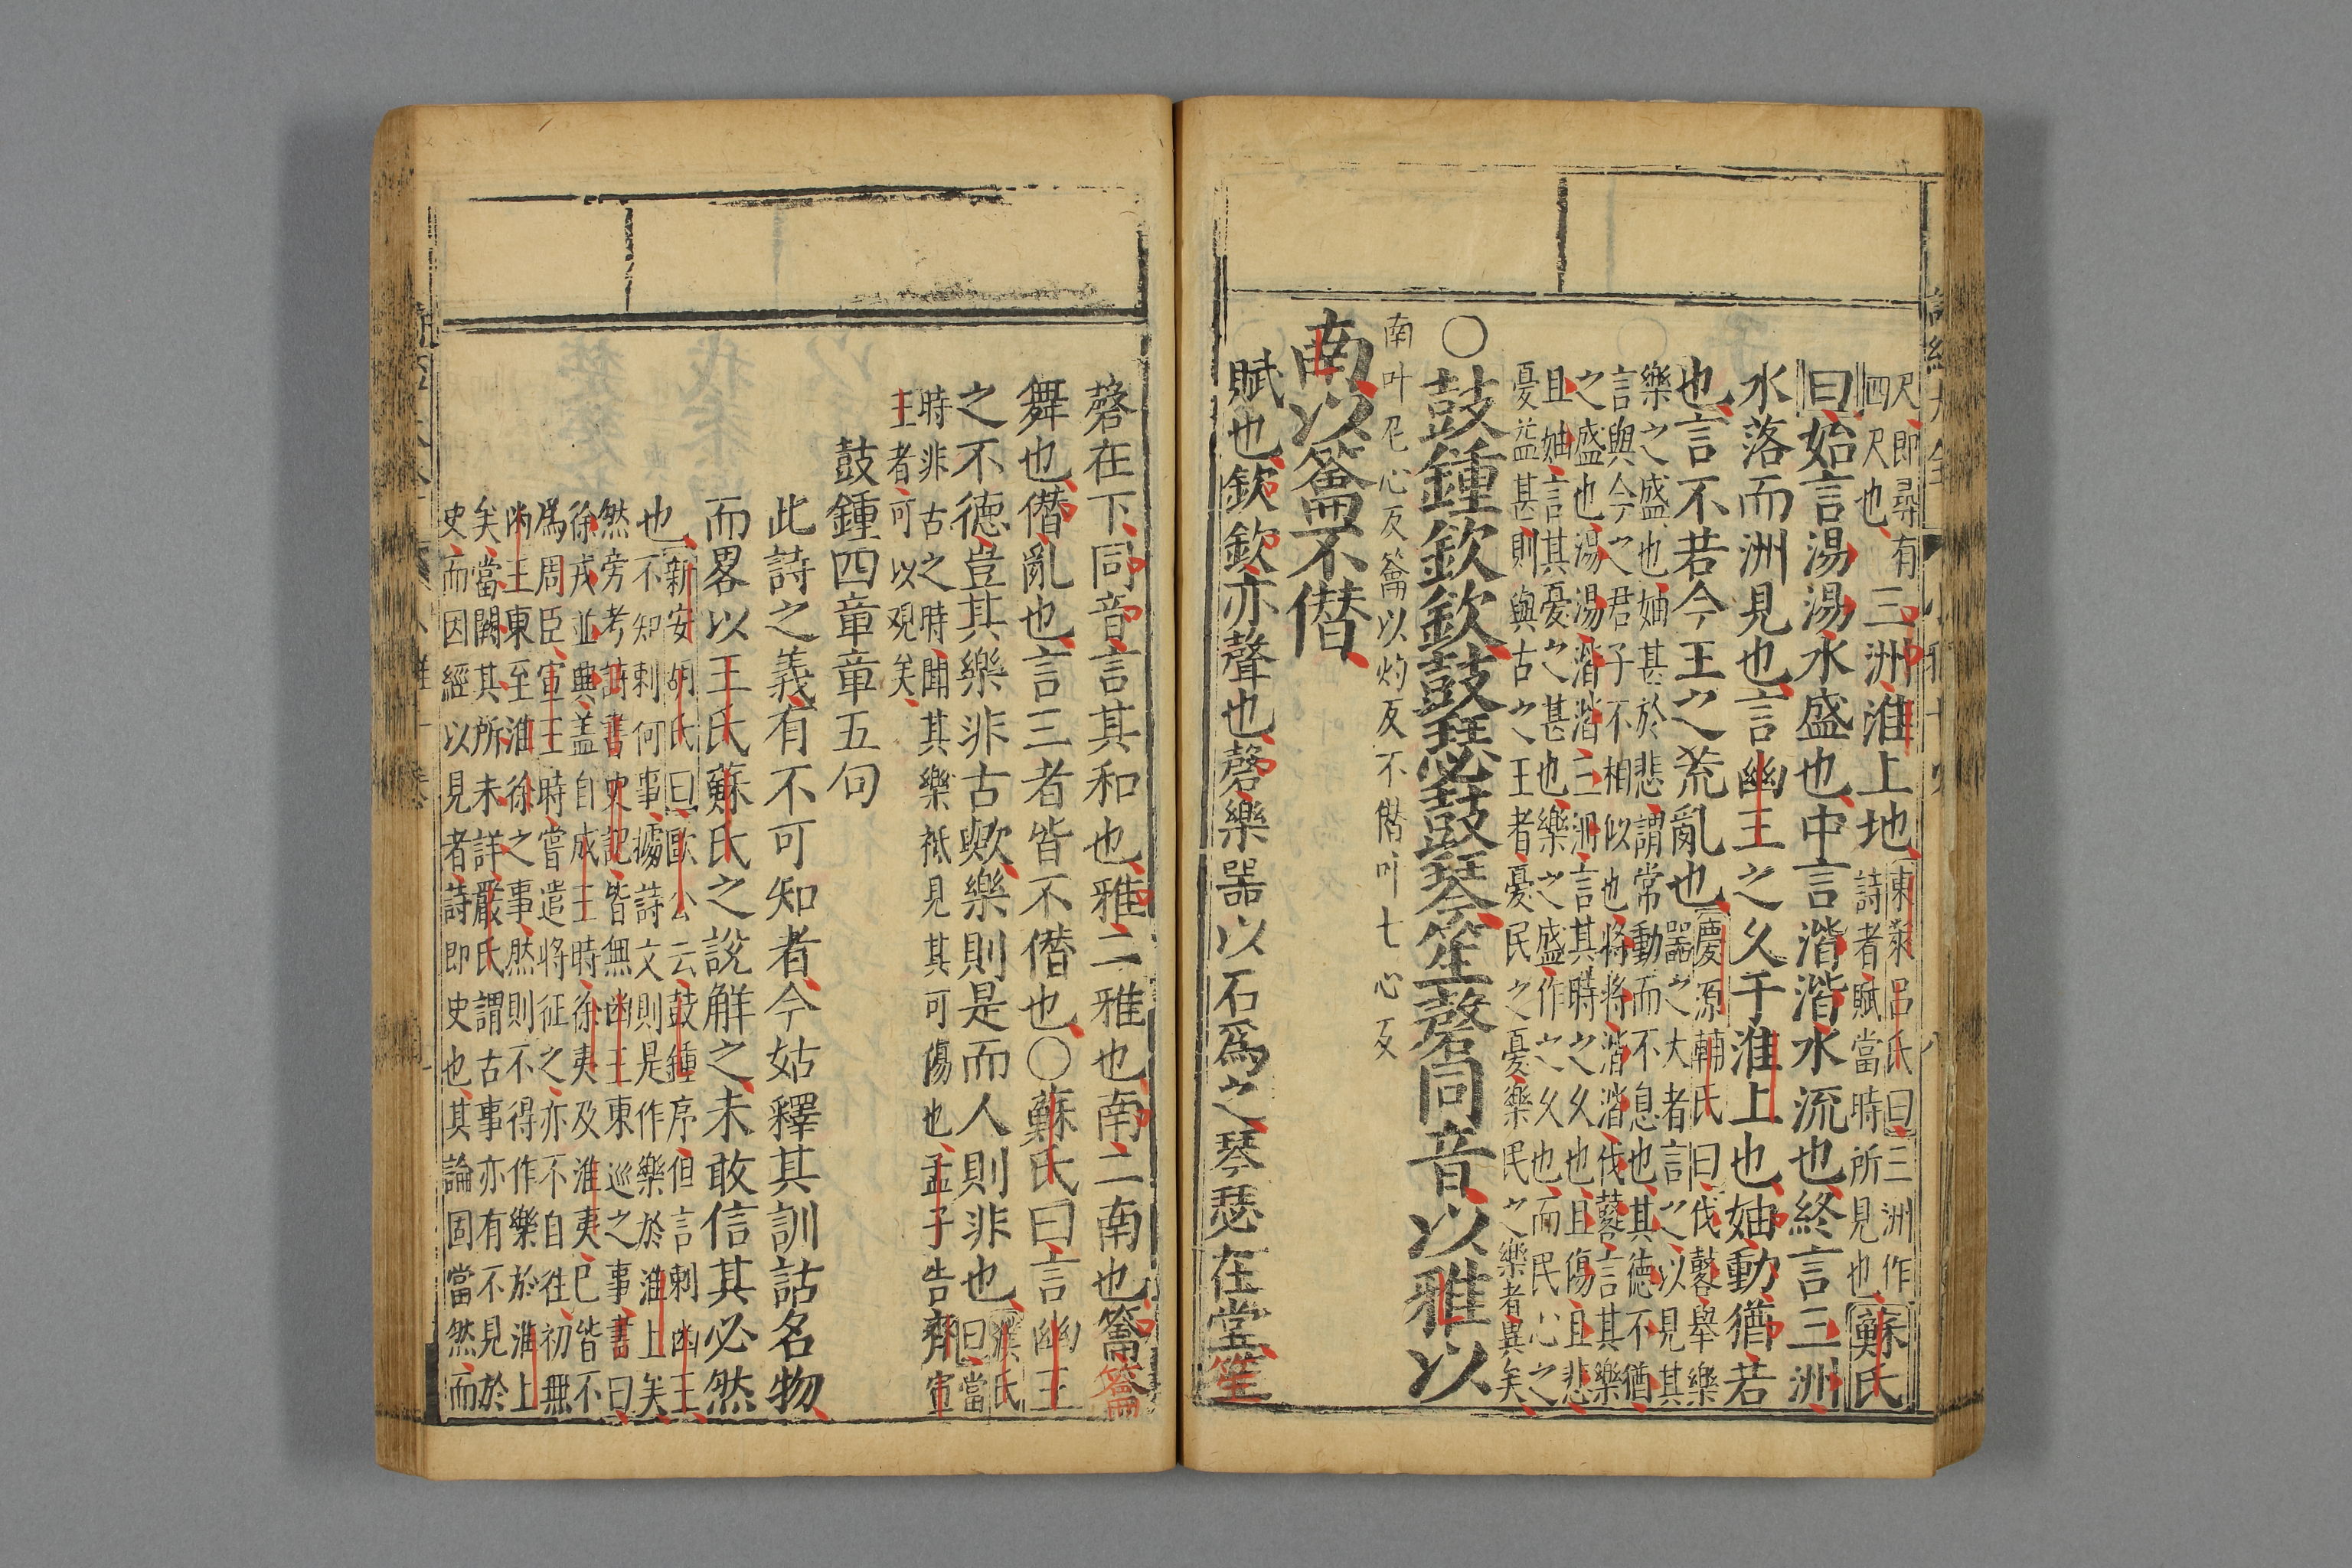 尺即尋有
四尺也
三洲淮上地
東萊呂氏曰三洲作
詩者賦當時所見也
蘇氏
曰始言湯湯水盛也中言湝湝水流也終言三洲
水落而洲見也言幽王之久于淮上也妯動猶若
也言不若今王之荒亂也
慶源輔氏曰伐鼛舉樂
器之大者言之以見其
樂之盛也妯甚於悲謂常動而不息也其德不猶
言與今之君子不相似也將將湝湝伐鼛言其樂
之盛也湯湯湝湝三洲言其時之久也且傷且悲
且妯言其憂之甚也樂之盛作之久也而民心之
憂益甚則與古之王者憂民之憂樂民之樂者異矣
○鼓鍾欽欽鼓瑟鼓琴笙磬同音以雅以
南叶尼心反籥以灼反不僭叶七心反
南以籥不僭
賦也欽欽亦聲也磬樂器以石為之琴瑟在堂笙
磬在下同音言其和也雅二雅也南二南也籥籥
舞也僭亂也言三者皆不僭也○蘇氏曰言幽王
之不德豈其樂非古歟樂則是而人則非也
濮氏
曰當
時非古之時聞其樂祇見其可傷也孟子告齊宣
王者可以觀矣
鼓鍾四章章五句
此詩之義有不可知者今姑釋其訓詁名物
而畧以王氏蘇氏之說解之未敢信其必然
也
新安胡氏曰歐公云鼓鍾序但言刺幽王
不知刺何事據詩文則是作樂於淮上矣
然旁考詩書史記皆無幽王東巡之事書曰
徐戎並興蓋自成王時徐夷及淮夷已皆不
為周臣宣王時嘗遣將征之亦不自往初無
幽王東至淮徐之事然則不得作樂於淮上
矣當闕其所未詳嚴氏謂古事亦有不見於
史而因經以見者詩即史也其論固當然而